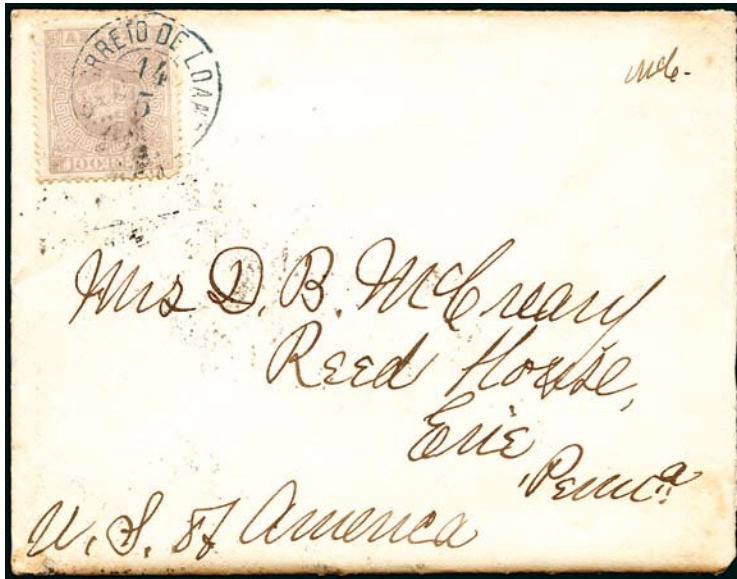 CORREIO DE LOAN
14
5
100 REIS
Mrs D. B. McCreary
Reed House,
Erie
Penna.
U. S. of America